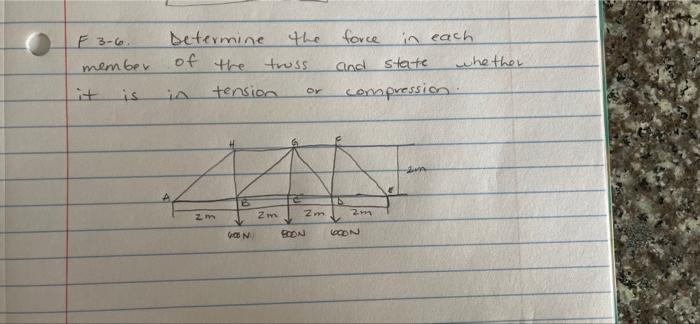 F 3-6. Determine the force in each
member of the truss and state whether
it is in tension or compression.
H G F
2m
A B C D E
2m 2m 2m 2m
800N 600N